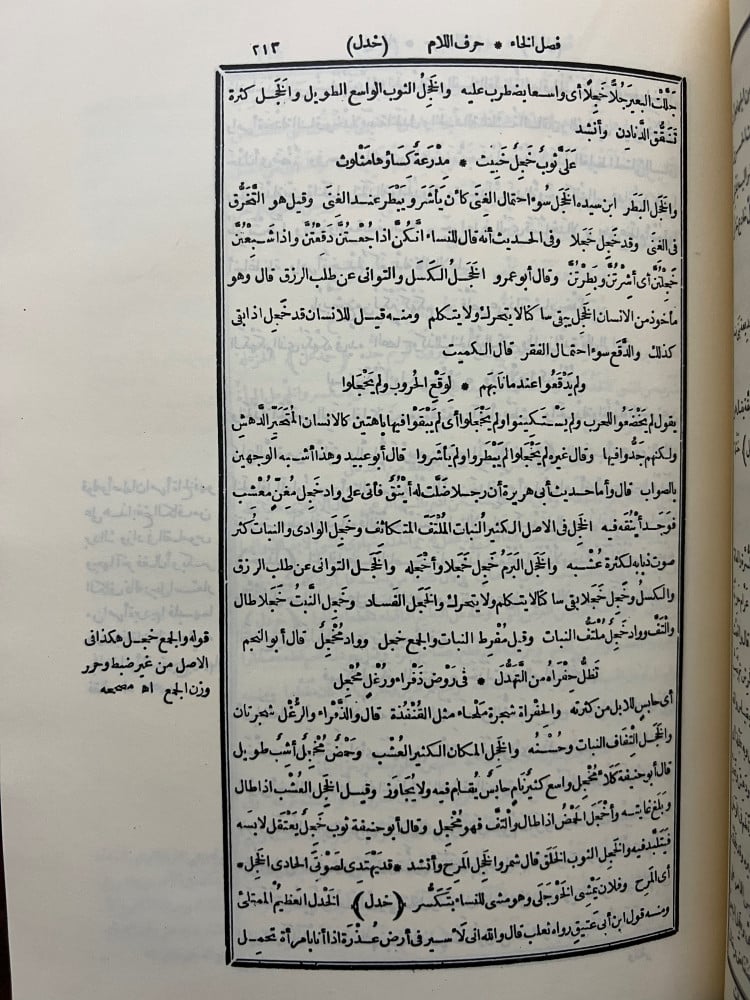 فصل الخاء * حرف اللام (خدل) ٢١٣
جَلَّلْتُ البعيرَ جُلًّا خَجِلًا أى واسعا يضطرب عليه والخَجِلُ الثوب الواسع الطويل والخَجَل كثرة
تَشَقُّق الدَّنادِن وأنشد
عَلَىَّ ثوبٌ خَجِلٌ خَبِيث * مِدْرَعةٌ كِساؤها مَثْلُوث
والخَجَل البَطَر ابن سيده الخَجَل سُوء احتمال الغِنَى كأن يَأْشَر ويَبْطَر عند الغِنَى وقيل هو التَّخَرُّق
فى الغنى وقد خَجِل خَجَلا وفى الحديث أنه قال للنساء انَّكُنَّ اذا جُعْتُنَّ دَقِعْتُنَّ واذا شَبِعْتُنَّ
خَجِلْتُنَّ أى أَشِرْتُنَّ وبَطِرْتُنَّ وقال أبو عمرو الخَجَلُ الكَسَل والتوانى عن طلب الرزق قال وهو
مأخوذ من الانسان الخَجِل يبقى ساكنا لا يتحرك ولا يتكلم ومنه قيل للانسان قد خَجِل اذا بقى
كذلك والدَّقَع سوء احتمال الفقر قال الكميت
ولم يَدْقَعُوا عندما نابَهم * لِوَقْعِ الحُروب ولم يَخْجَلوا
يقول لم يَخْضَعُوا للحرب ولم يَسْتَكينوا ولم يَخْجَلوا أى لم يَبْقَوْا فيها باهتين كالانسان المُتَحَيِّر الدَّهِشِ
ولكنهم جَدُّوا فيها وقال غيره لم يَخْجَلوا لم يَبْطَروا ولم يأشَروا قال أبو عبيد وهذا أشبه الوجهين
بالصواب قال وأما حديث أبى هريرة أن رجلا ضَلَّت له أَيْنُقٌ فأتى على وادٍ خَجِلٍ مُغِنٍّ مُعْشِبٍ
فوَجَد أَيْنُقَه فيه الخَجِل فى الاصل الكثير النبات المُلْتَفّ المتكاثف وخَجِل الوادى والنبات كثر
صوت ذبابه لكثرة عُشْبه والخَجَل البَرَم خَجِل خَجَلا وأخْجَله والخَجَل التوانى عن طلب الرزق
والكسلُ وخَجِل خَجَلا بقى ساكنا لا يتكلم ولا يتحرك والخَجَل الفساد وخَجِل النَّبتُ خَجَلا طال
والْتَفَّ وواد خَجِلٌ مُلْتَفُّ النبات وقيل مُفْرِط النبات والجمع خجل وواد مُخْجِلٌ قال أبو النجم
تَظَلُّ حِفْراهُ من التَّهَدُّل * فى رَوْضِ ذَفْراء ورُغْلٍ مُخْجِل
أى حابِسٍ للابل من كثرته والحِفْراة شجرة مَلْحاء مثل القُنْفُذة قال والذَّفْراء والرُّغْل شجرتان
والخَجَل الْتِفاف النبات وحُسْنُه والخَجِل المكان الكثير العُشْب وحَمْضٌ مُخْجِلٌ أَشِبٌ طويل
قال أبو حنيفة كَلأٌ مُخْجِل واسع كثير تامٌّ حابسٌ يُقام فيه ولا يُجَاوَز وقيل الخَجِل العُشْب اذا طال
وبلَغ غايتَه وأخْجَلَ الحَمْضُ اذا طال والْتَفّ فهو مُخْجِل وقال أبو حنيفة ثوب خَجِلٌ يَعْتَقِل لابسه
فيَتَلَبَّد فيه والخَجِل الثوب الخَلَق قال شمر والخَجِل المَرِح وأنشد * قد يَهْتَدِى لصَوْتىَ الحادى الخَجِل *
أى المَرِح وفلان يَمْشِى الخَوْجَلَى وهو مشى للنساء بتَكَسُّر (خدل) الخَدْل العظيمُ الممتلئ
ومنه قول ابن أبى عَتِيق رواه ثعلب قال والله انى لَأسير فى أرض عُذْرة اذا أنا بامرأة تحمل
قوله والجمع خجل هكذا فى
الاصل من غير ضبط وحرر
وزن الجمع اه مصححه